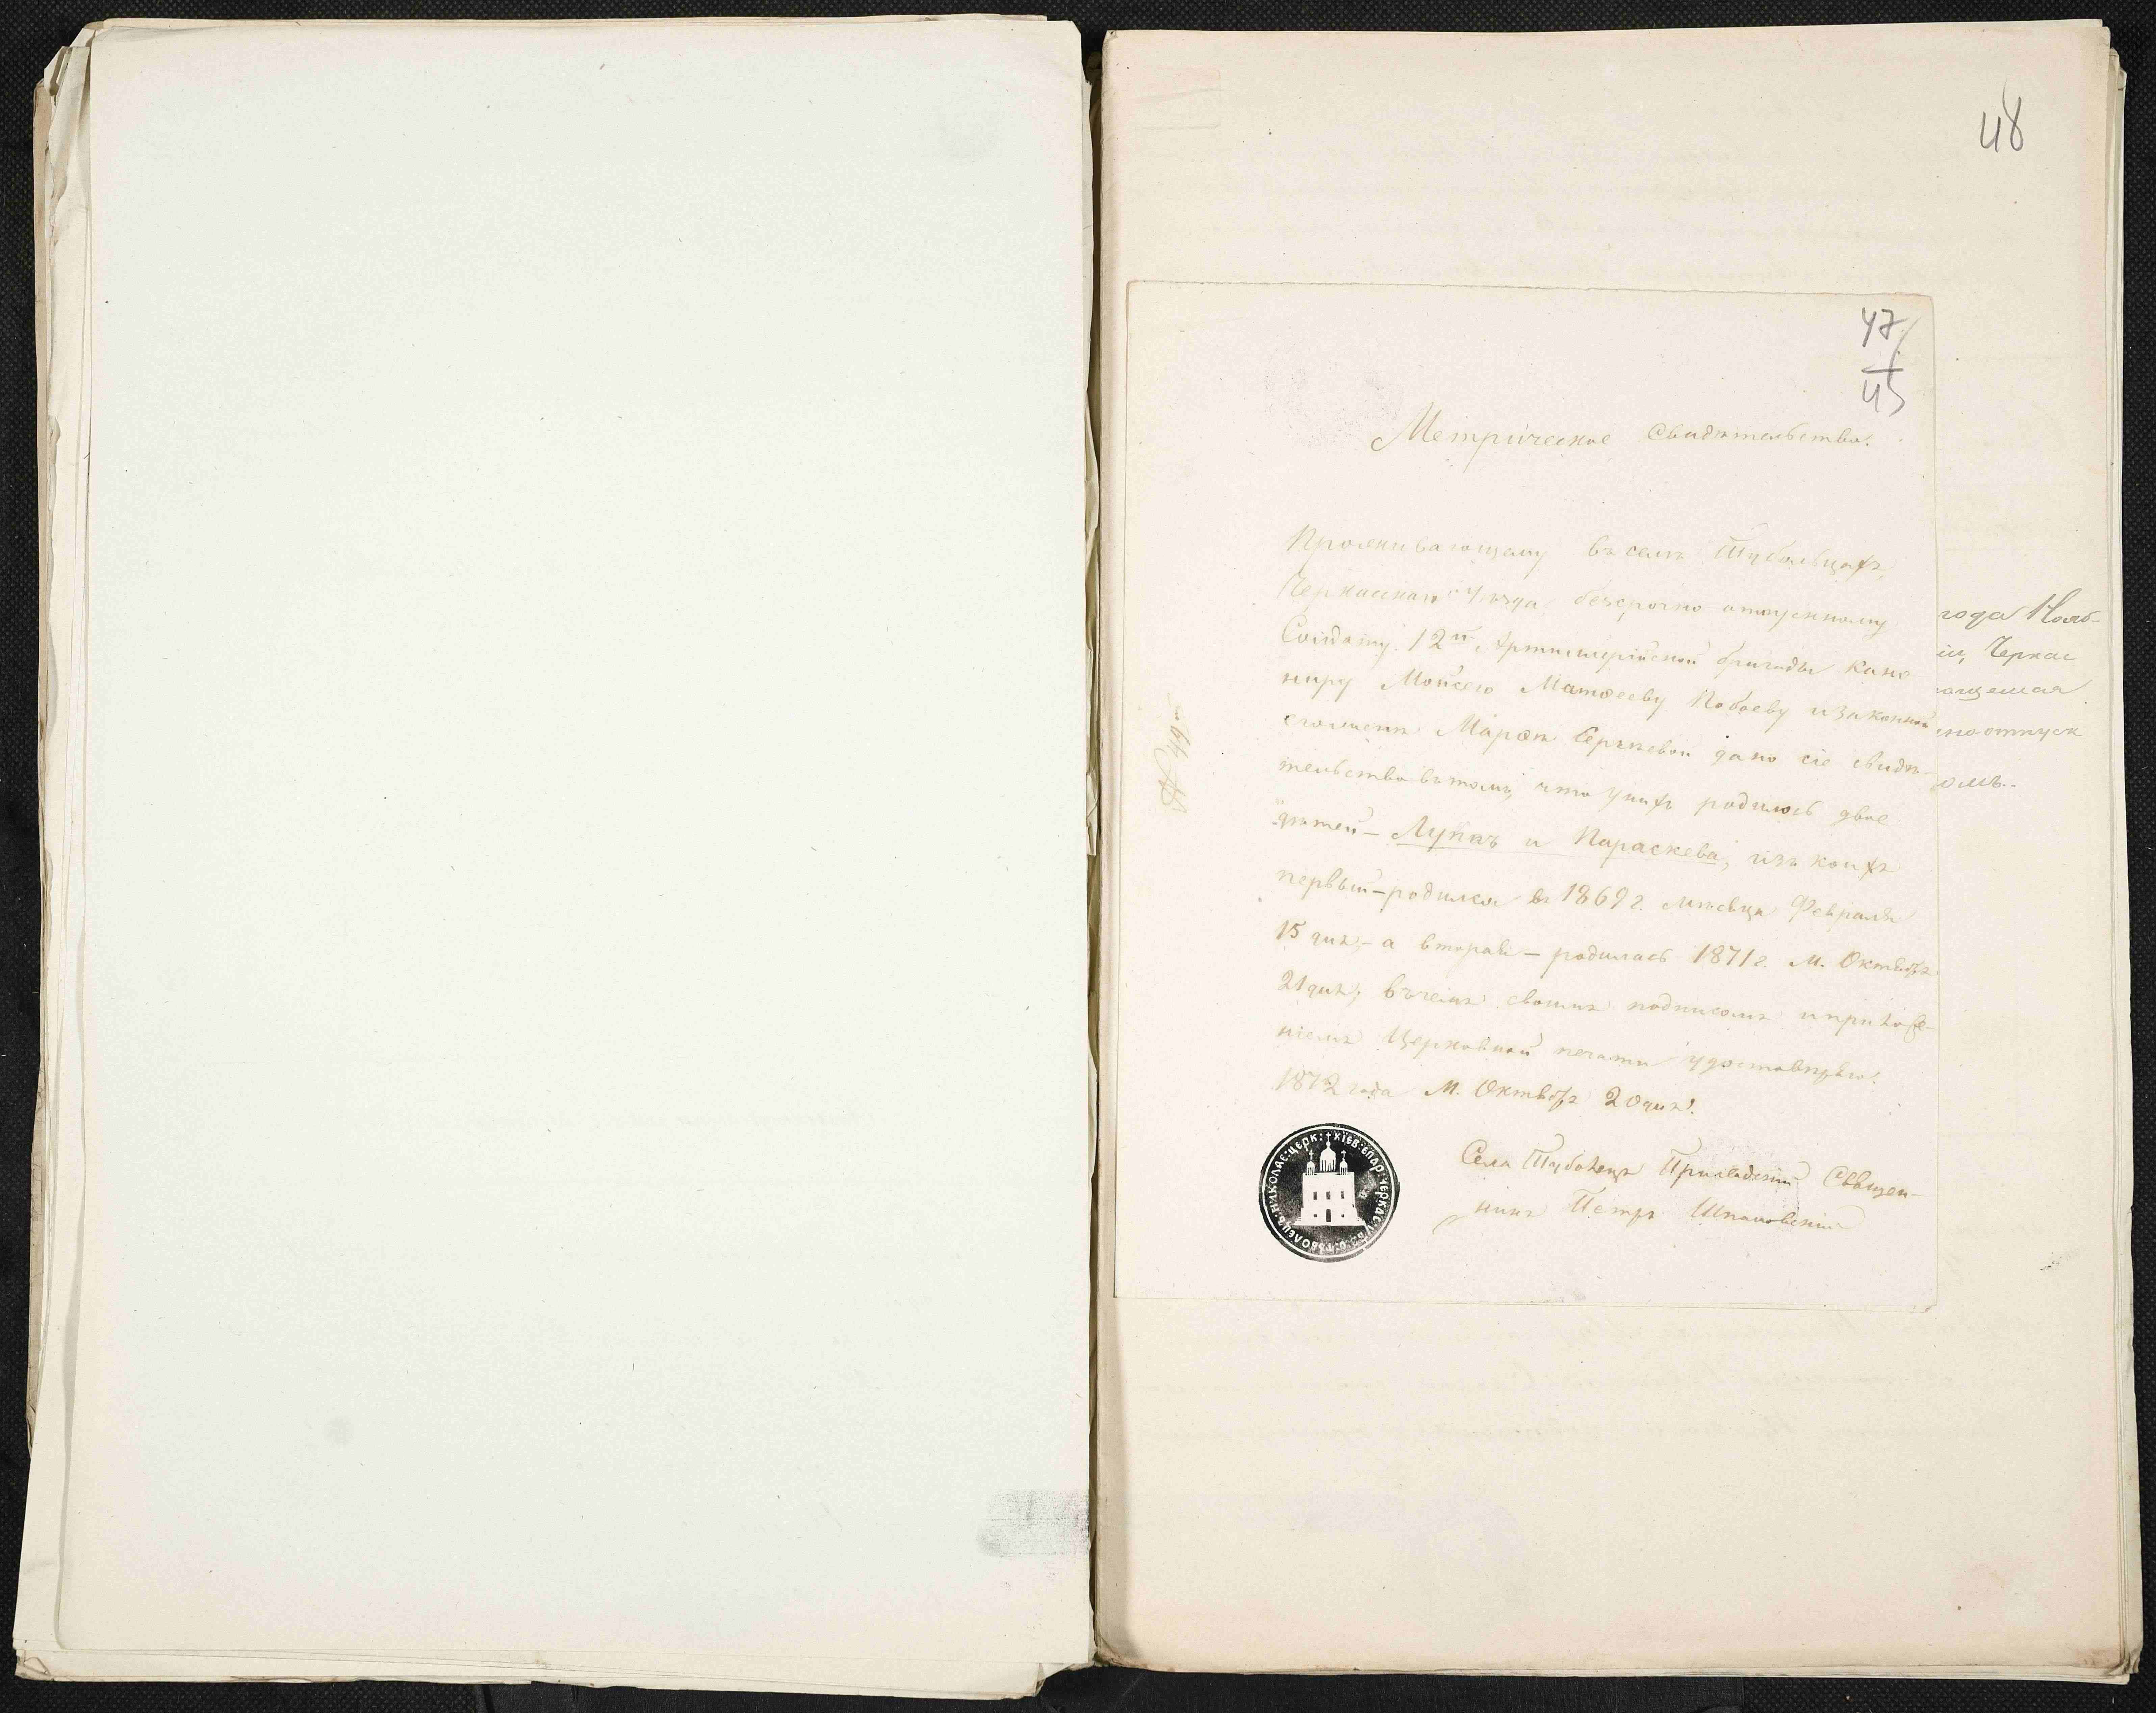 48
47
45
Метрическое Свидѣтельство.
Проживающему въ селѣ Тубольцахъ,
Черкасскаго Уѣзда безсрочно отпускному
Солдату 12й Артиллерійской бригады Кано-
ниру Моисею Матвееву и законной
его женѣ Марѳѣ Сергѣевой дано сіе свидѣ-
тельство въ томъ, что у нихъ родилось двое
дѣтей – Луппъ и Параскева, изъ коихъ
первый – родился въ 1869 г. мѣсяца Февраля
15 дня, – а вторая – родилась 1871 г. М. Октября
21 дня; въ чемъ своимъ подписомъ и приложе-
ніемъ Церковной печати удостовѣряю.
1872 года М. Октября 20 дня.
Села Туболецъ Приходскій Священ-
никъ Петръ
КІЕВ: ЕПАР: ЧЕРКАС: УѢЗ: С: ТУБОЛЕЦЪ: НИКОЛАЕ: ЦЕРК:
№ 49
года Нояб-
іи, Черкас
ащемся
но отпуск
омъ.